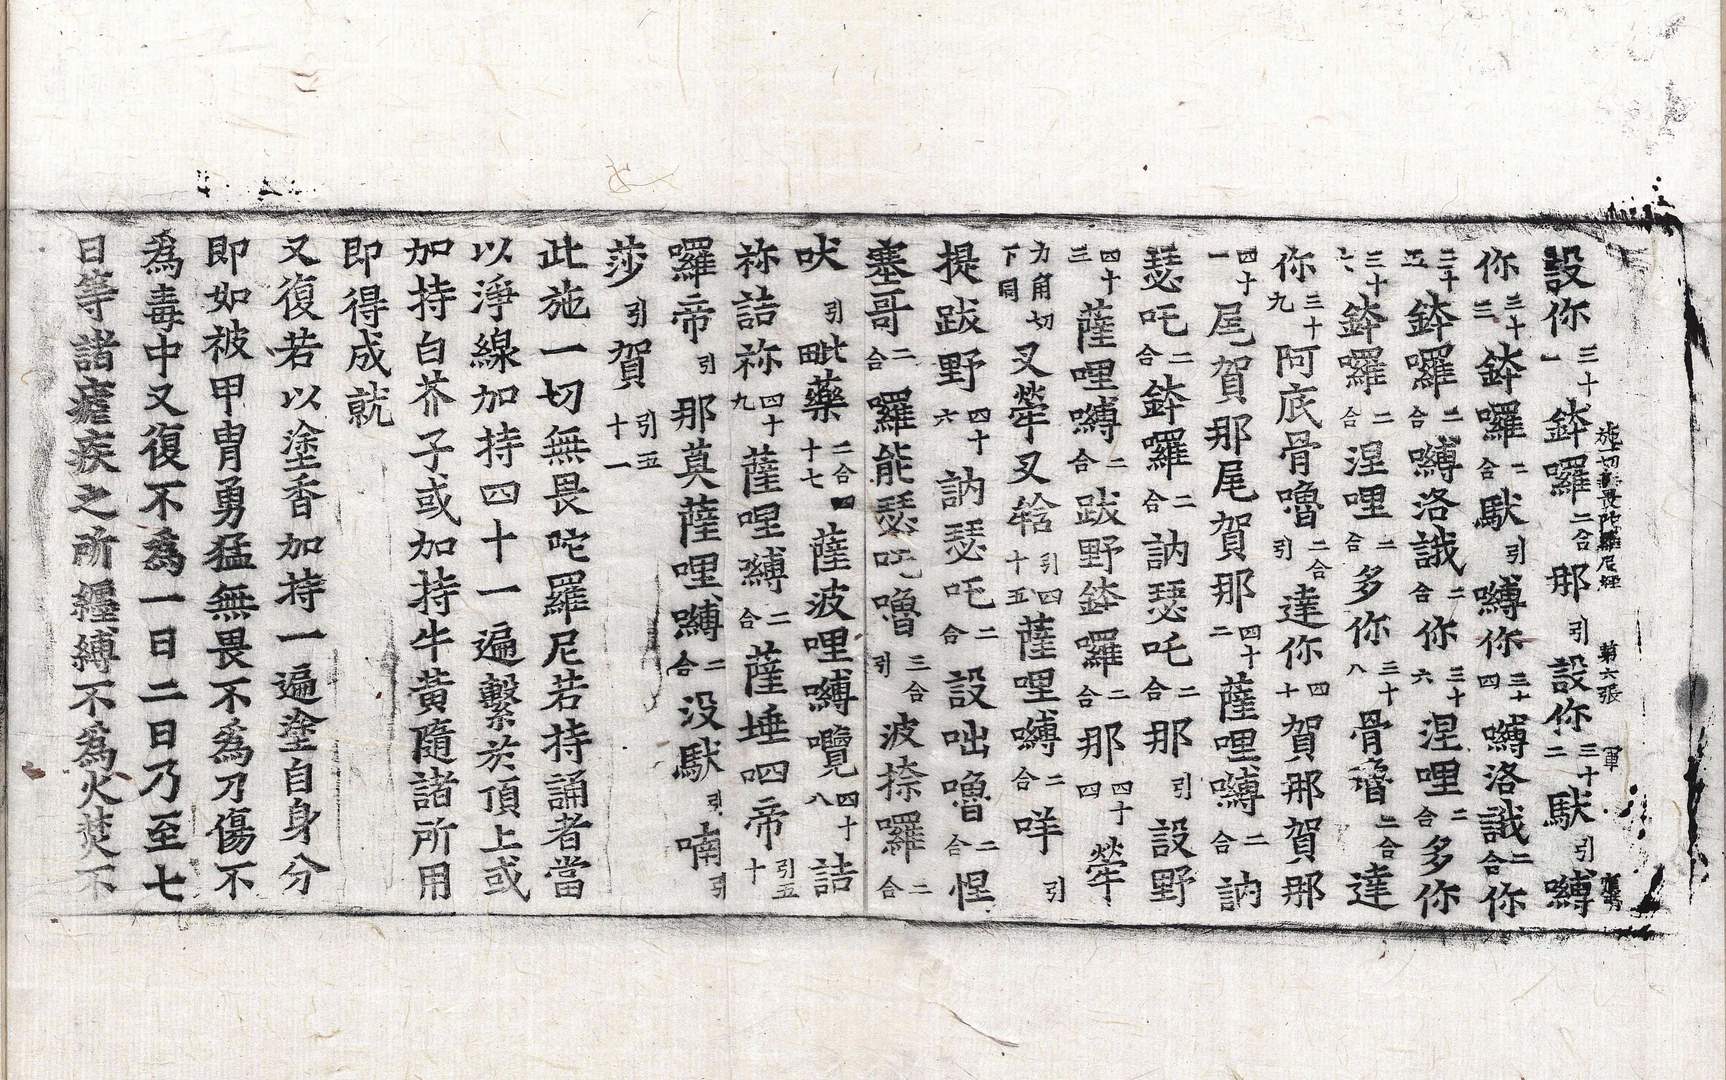 施一切無畏陁羅尼經 第六張 軍
設你三十一鉢囉二合那引設你三十二馱引嚩
你三十三鉢囉二合馱引嚩你三十四嚩洛誐二合你
三十五鉢囉二合嚩洛誐二合你三十六涅哩二合多你
三十七鉢囉二合涅哩二合多你三十八骨嚕二合達
你三十九阿底骨嚕二合引達你四十賀那賀那
四十一尾賀那尾賀那四十二薩哩嚩二合訥
瑟吒二合鉢囉二合訥瑟吒二合那引設野
四十三薩哩嚩二合跋野鉢囉二合那四十四犖
力角切下同叉犖叉䭃引四十五薩哩嚩二合咩引
提跋野四十六訥瑟吒二合設咄嚕二合惺
塞哥二合囉能瑟吒嚕三合引波捺囉二合
吠引毗藥二合四十七薩波哩嚩囕四十八詰
祢詰祢四十九薩哩嚩二合薩埵呬帝引五十
囉帝引那莫薩哩嚩二合沒馱引喃引
莎引賀引五十一
此施一切無畏咜羅尼若持誦者當
以淨線加持四十一遍繫於頂上或
加持白芥子或加持牛黃隨諸所用
即得成就
又復若以塗香加持一遍塗自身分
即如被甲冑勇猛無畏不爲刀傷不
爲毒中又復不爲一日二日乃至七
日等諸瘧疾之所纏縛不爲火焚不